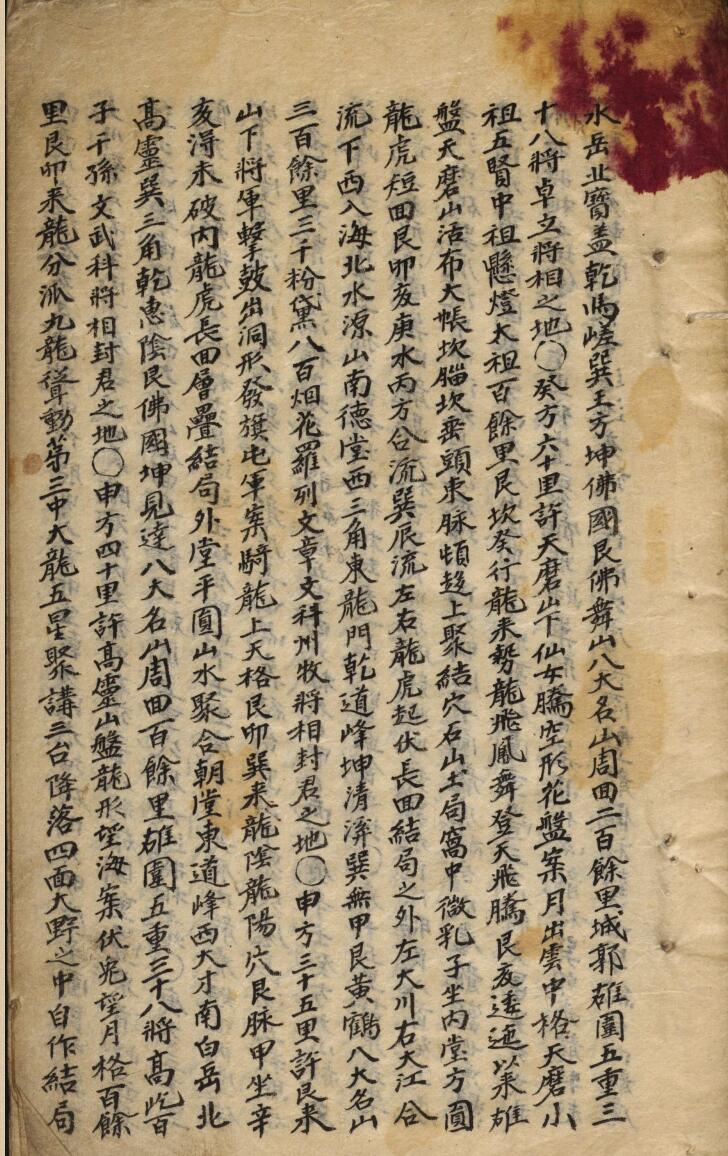 水岳北寶盖乾馬嵯巽王方坤佛國艮佛舞山八大名山周回二百餘里城郭雄圍五重三
十八將卓立將相之地〇癸方六十里許天磨山下仙女騰空形花盤案月出雲中格天磨小
祖五賢中祖懸燈太祖百餘里艮坎癸行龍来勢龍飛鳳舞登天飛騰艮亥逶迤以来雄
盤天磨山活布大帳坎腦坎垂頭束脉頓起上聚結穴石山土局窩中微乳子坐内堂方圓
龍虎短回艮卯亥庚水丙方合流巽辰流左右龍虎起伏長回結局之外左大川右大江合
流下西入海北水源山南德堂西三角東龍門乾道峰坤清溪巽無甲艮黄鶴八大名山
三百餘里三千粉黛八百烟花羅列文章文科州牧將相封君之地〇申方三十五里許艮来
山下將軍擊鼓出洞形發旗屯軍案騎龍上天格艮卯巽来龍陰龍陽穴艮脉甲坐辛
亥得未破内龍虎長回層疊結局外堂平圓山水聚合朝堂東道峰西大才南白岳北
高靈巽三角乾惠陰艮佛國坤見達八大名山周回百餘里雄圍五重三十八將高屹百
子千孫文武科將相封君之地〇申方四十里許高靈山盤龍形望海案伏兎望月格百餘
里艮卯来龍分派九龍聳動第三中大龍五星聚講三台降落四面大野之中自作結局